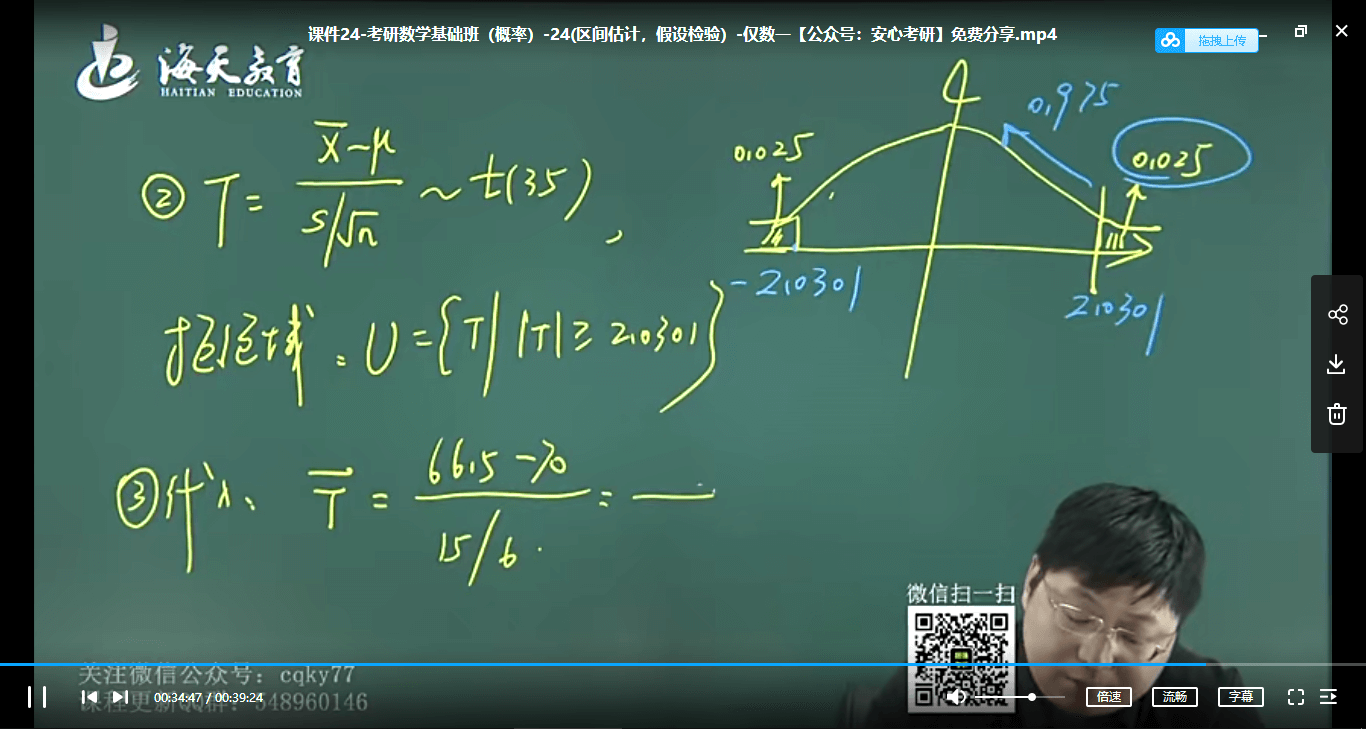 课件24-考研数学基础班（概率）-24(区间估计，假设检验）-仅数一【公众号：安心考研】免费分享.mp4
拖拽上传
海天教育
HAITIAN EDUCATION
② T = (X̄-μ)/(S/√n) ~ t(35),
拒绝域: U = {T| |T| ≥ 2.0301}
③ 代入、 T̄ = (66.5-70)/(15/6) = —
0.025
0.975
0.025
-2.0301
2.0301
微信扫一扫
关注微信公众号：cqky77
课程更新QQ群：548960146
00:34:47 / 00:39:24
倍速
流畅
字幕